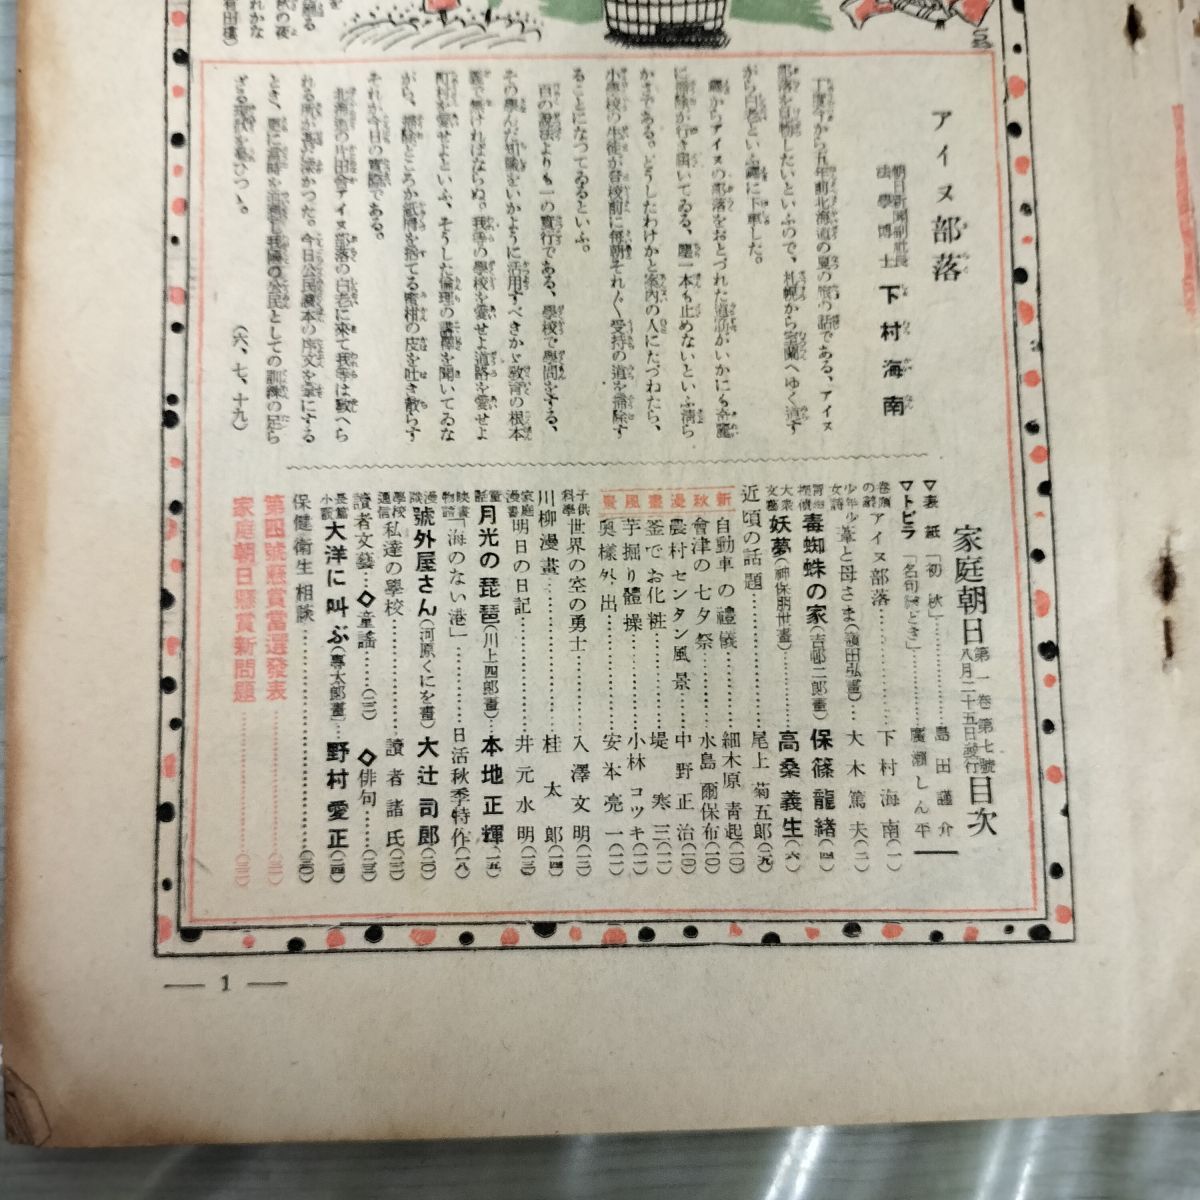 アイヌ部落
朝日新聞副社長
法學博士
下村海南
丁度今から五年前北海道の夏の旅の話である、アイヌ
部落を見物したいといふので、札幌から室蘭へゆく道す
がら白老といふ驛に下車した。
驛からアイヌの部落をおとづれた道筋がいかにも奇麗
に掃除が行き屆いてゐる、塵一本も止めないといふ淸ら
かさである。どうしたわけかと案內の人にたづねたら、
小學校の生徒が登校前に每朝それ〴〵受持の道を掃除す
ることになつてゐるといふ。
百の說法よりも一の實行である、學校で學問をする、
その學んだ知識をいかように活用すべきかゞ敎育の根本
義で無ければならぬ。我等の學校を愛せよ道路を愛せよ
町村を愛せよといふ、そうした倫理の講釋を聞いてゐな
がら、掃除どころか紙屑を捨てる蜜柑の皮を吐き散らす
それが今日の實際である。
北海道の片田舍アイヌ部落の白老に來て我等は敎へら
れる所が眞に深かつた。今日公民讀本の序文を草にする
とき、更に當時を追懷し我國の公民としての訓練の足ら
ざる現代を憂ひつゝ。
(六、七、十九)
家庭朝日 第一卷第七號 八月二十五日發行 目次
▽表紙「初秋」………島田謹介
▽トビラ「名句繪とき」………廣瀨しん平
卷頭の辭 アイヌ部落………下村海南(一)
少年少女詩 葦と母さま(嶺田弘畫)…大木篤夫(二)
探偵 毒蜘蛛の家(吉邨二郎畫)保篠龍緖(四)
大衆文藝 妖夢(神保朋世畫)………高桑義生(六)
近頃の話題………尾上菊五郞(九)
新秋漫畫風景
自動車の禮儀………細木原靑起(一〇)
會津の七夕祭………水島爾保布(一〇)
農村センタン風景………中野正治(一〇)
釜でお化粧………堤寒三(一一)
芋掘り體操………小林コツキ(一一)
奧樣外出………安本亮一(一一)
子供科學 世界の空の勇士………入澤文明(一二)
川柳漫畫………桂太郞(一四)
家庭漫畫 明日の日記………井元水明(一三)
童話 月光の琵琶(川上四郞畫)…本地正輝(一五)
映畫物語「海のない港」………日活秋季特作(一八)
漫談 號外屋さん(河原くにを畫)大辻司郞(二〇)
學校通信 私達の學校………讀者諸氏(二二)
讀者文藝…◇童謠………(二二) ◇俳句………(二三)
長篇小說 大洋に叫ぶ(專太郞畫)…野村愛正(二四)
保健衞生相談………(三〇)
第四號懸賞當選發表………(三一)
家庭朝日懸賞新問題………(三二)
— 1 —